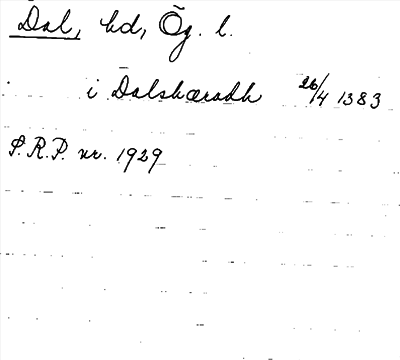 Dal, hd, Ög. l.
i Dalshæradh 26/4 1383
S.R.P. nr. 1929